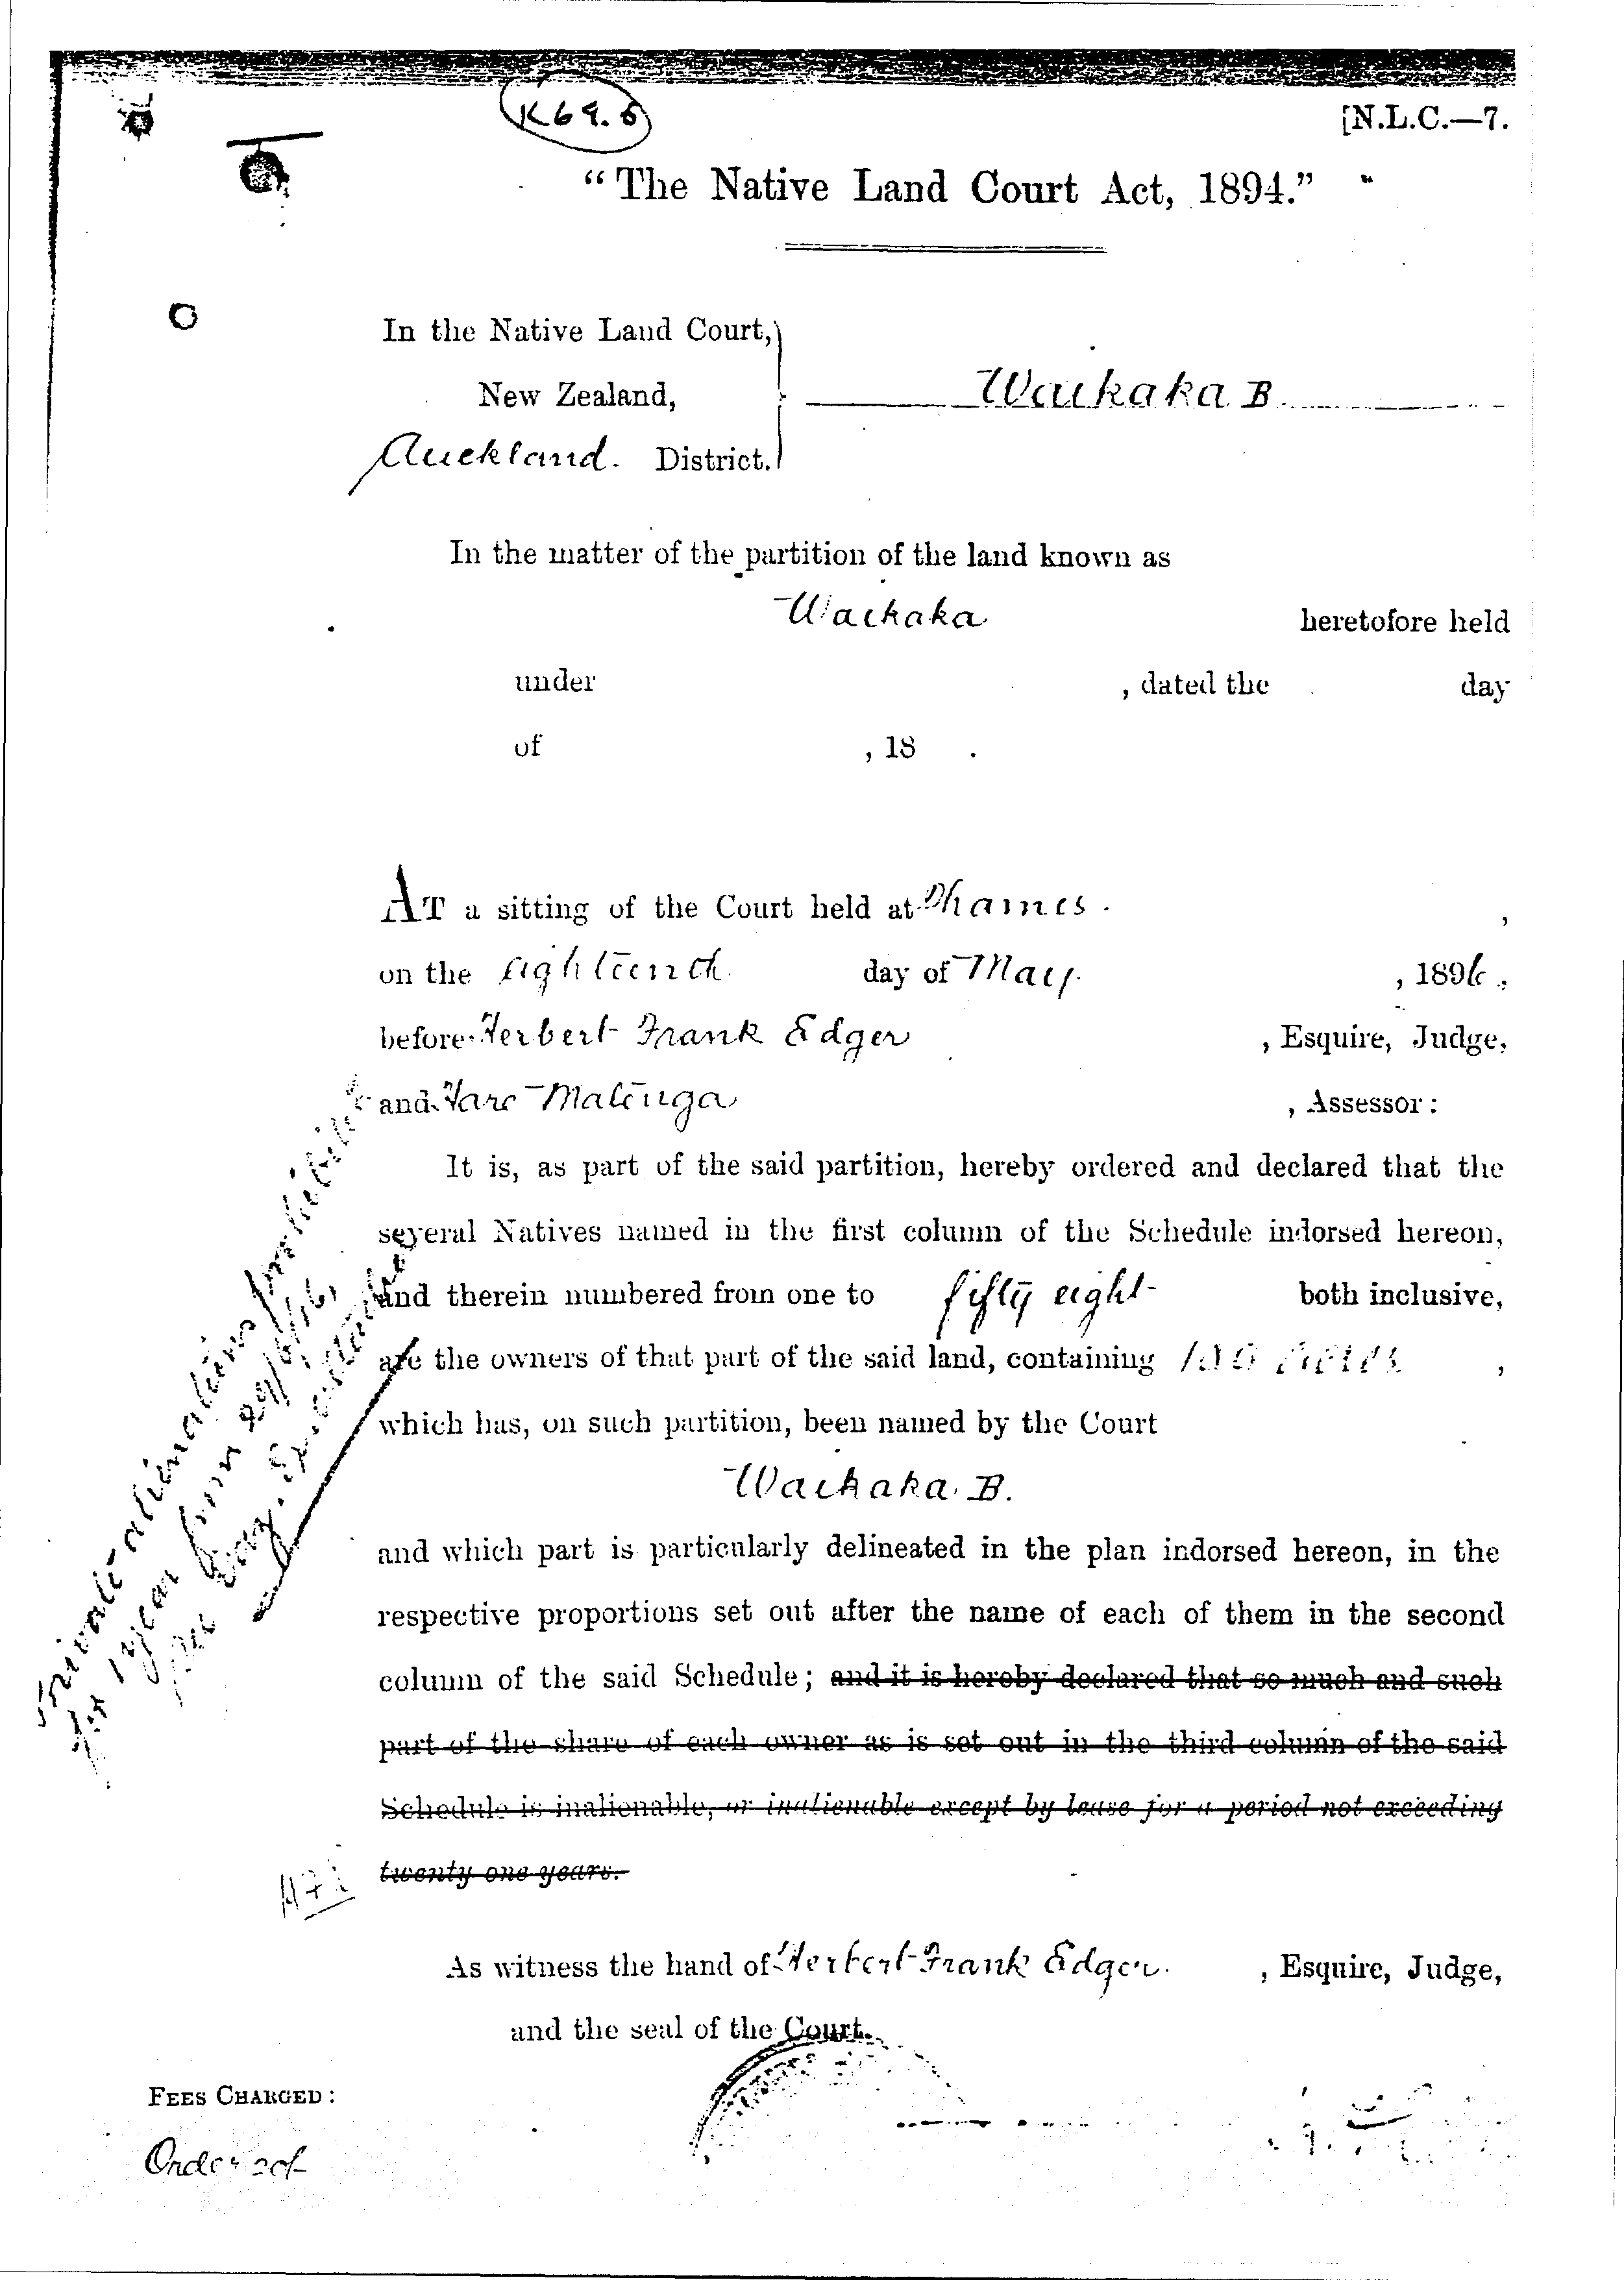 K69.5
[N.L.C.—7.
"The Native Land Court Act, 1894."
In the Native Land Court,
New Zealand,
Waikaka B.
Auckland. District.
In the matter of the partition of the land known as
Waikaka heretofore held
under , dated the day
of , 18 .
AT a sitting of the Court held at Thames. ,
on the eighteenth day of May. , 1896,
before Herbert Frank Edger , Esquire, Judge,
and , Assessor:
It is, as part of the said partition, hereby ordered and declared that the
several Natives named in the first column of the Schedule indorsed hereon,
and therein numbered from one to fifty eight both inclusive,
are the owners of that part of the said land, containing acres ,
which has, on such partition, been named by the Court
Waikaka B.
and which part is particularly delineated in the plan indorsed hereon, in the
respective proportions set out after the name of each of them in the second
column of the said Schedule; and it is hereby declared that so much and such
part of the share of each owner as is set out in the third column of the said
Schedule is inalienable, or inalienable except by lease for a period not exceeding
twenty-one years.
As witness the hand of Herbert Frank Edger. , Esquire, Judge,
and the seal of the Court.
FEES CHARGED:
Order 20/-
Private alienations prohibited
for 1 year from